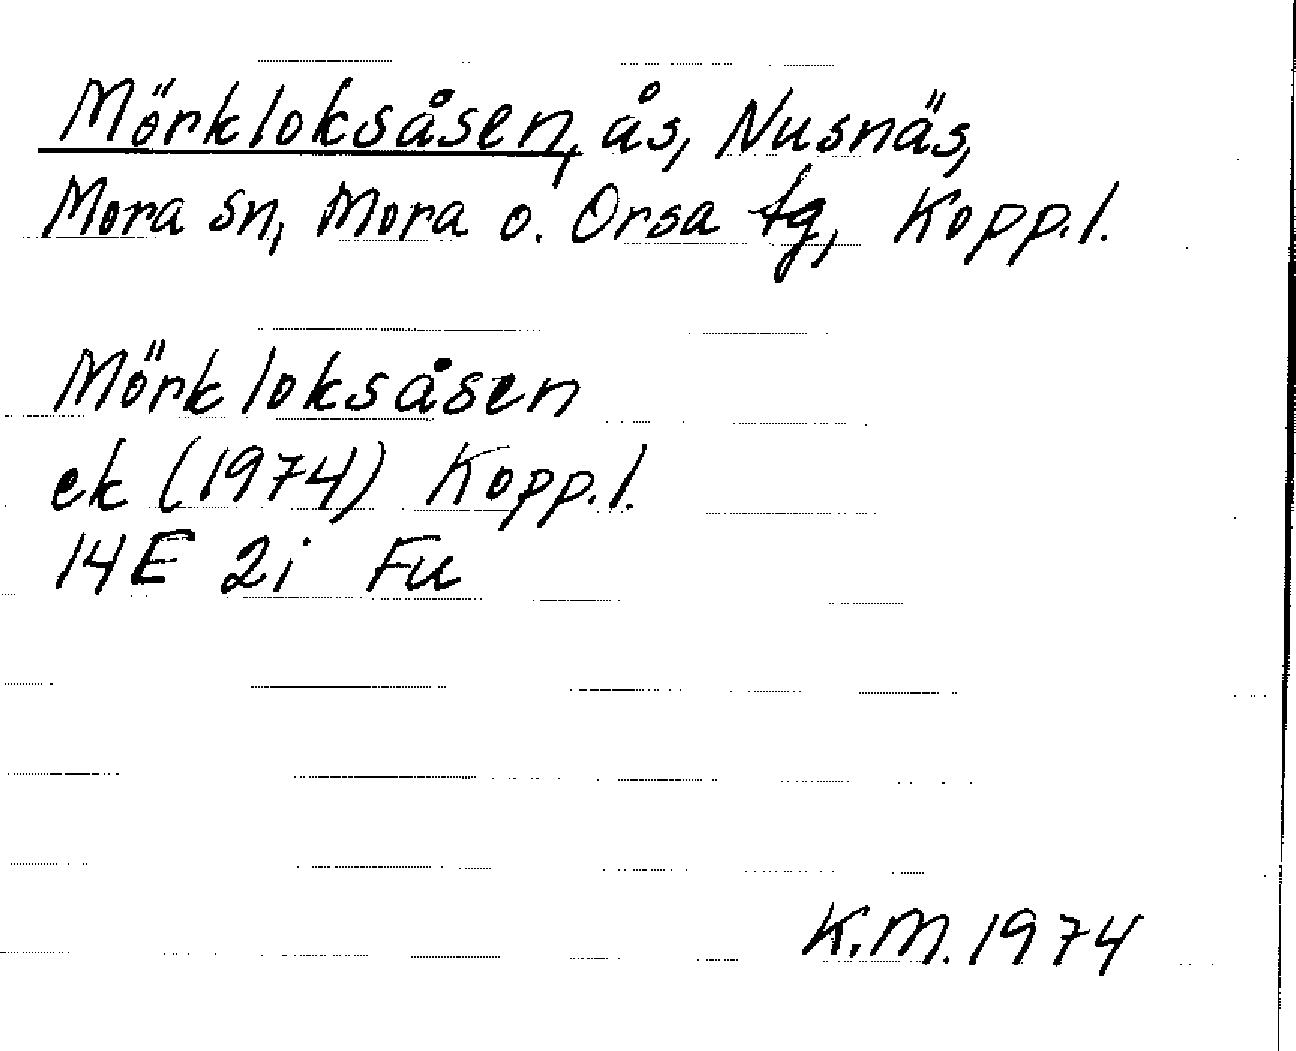 Mörkloksåsen, ås, Nusnäs,
Mora sn, Mora o. Orsa tg, Kopp.l.
Mörkloksåsen
ek (1974) Kopp.l.
14E 2i Fu
K.M. 1974